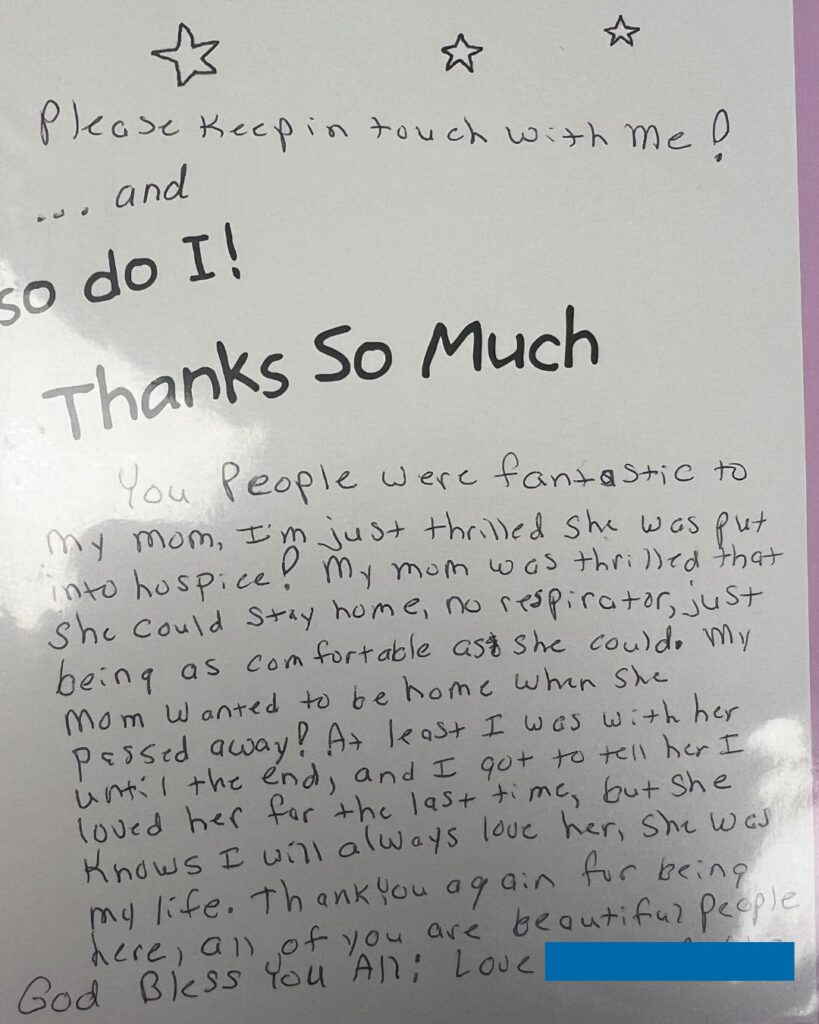 Please Keep in touch with Me!
... and
so do I!
Thanks So Much
You People were fantastic to
my mom, I'm just thrilled she was put
into hospice! My mom was thrilled that
she could stay home, no respirator, just
being as comfortable as she could. My
Mom wanted to be home when she
passed away! At least I was with her
until the end, and I got to tell her I
loved her for the last time, but she
knows I will always love her, she was
my life. Thank You again for being
here, all of you are beautiful People
God Bless You All! Love